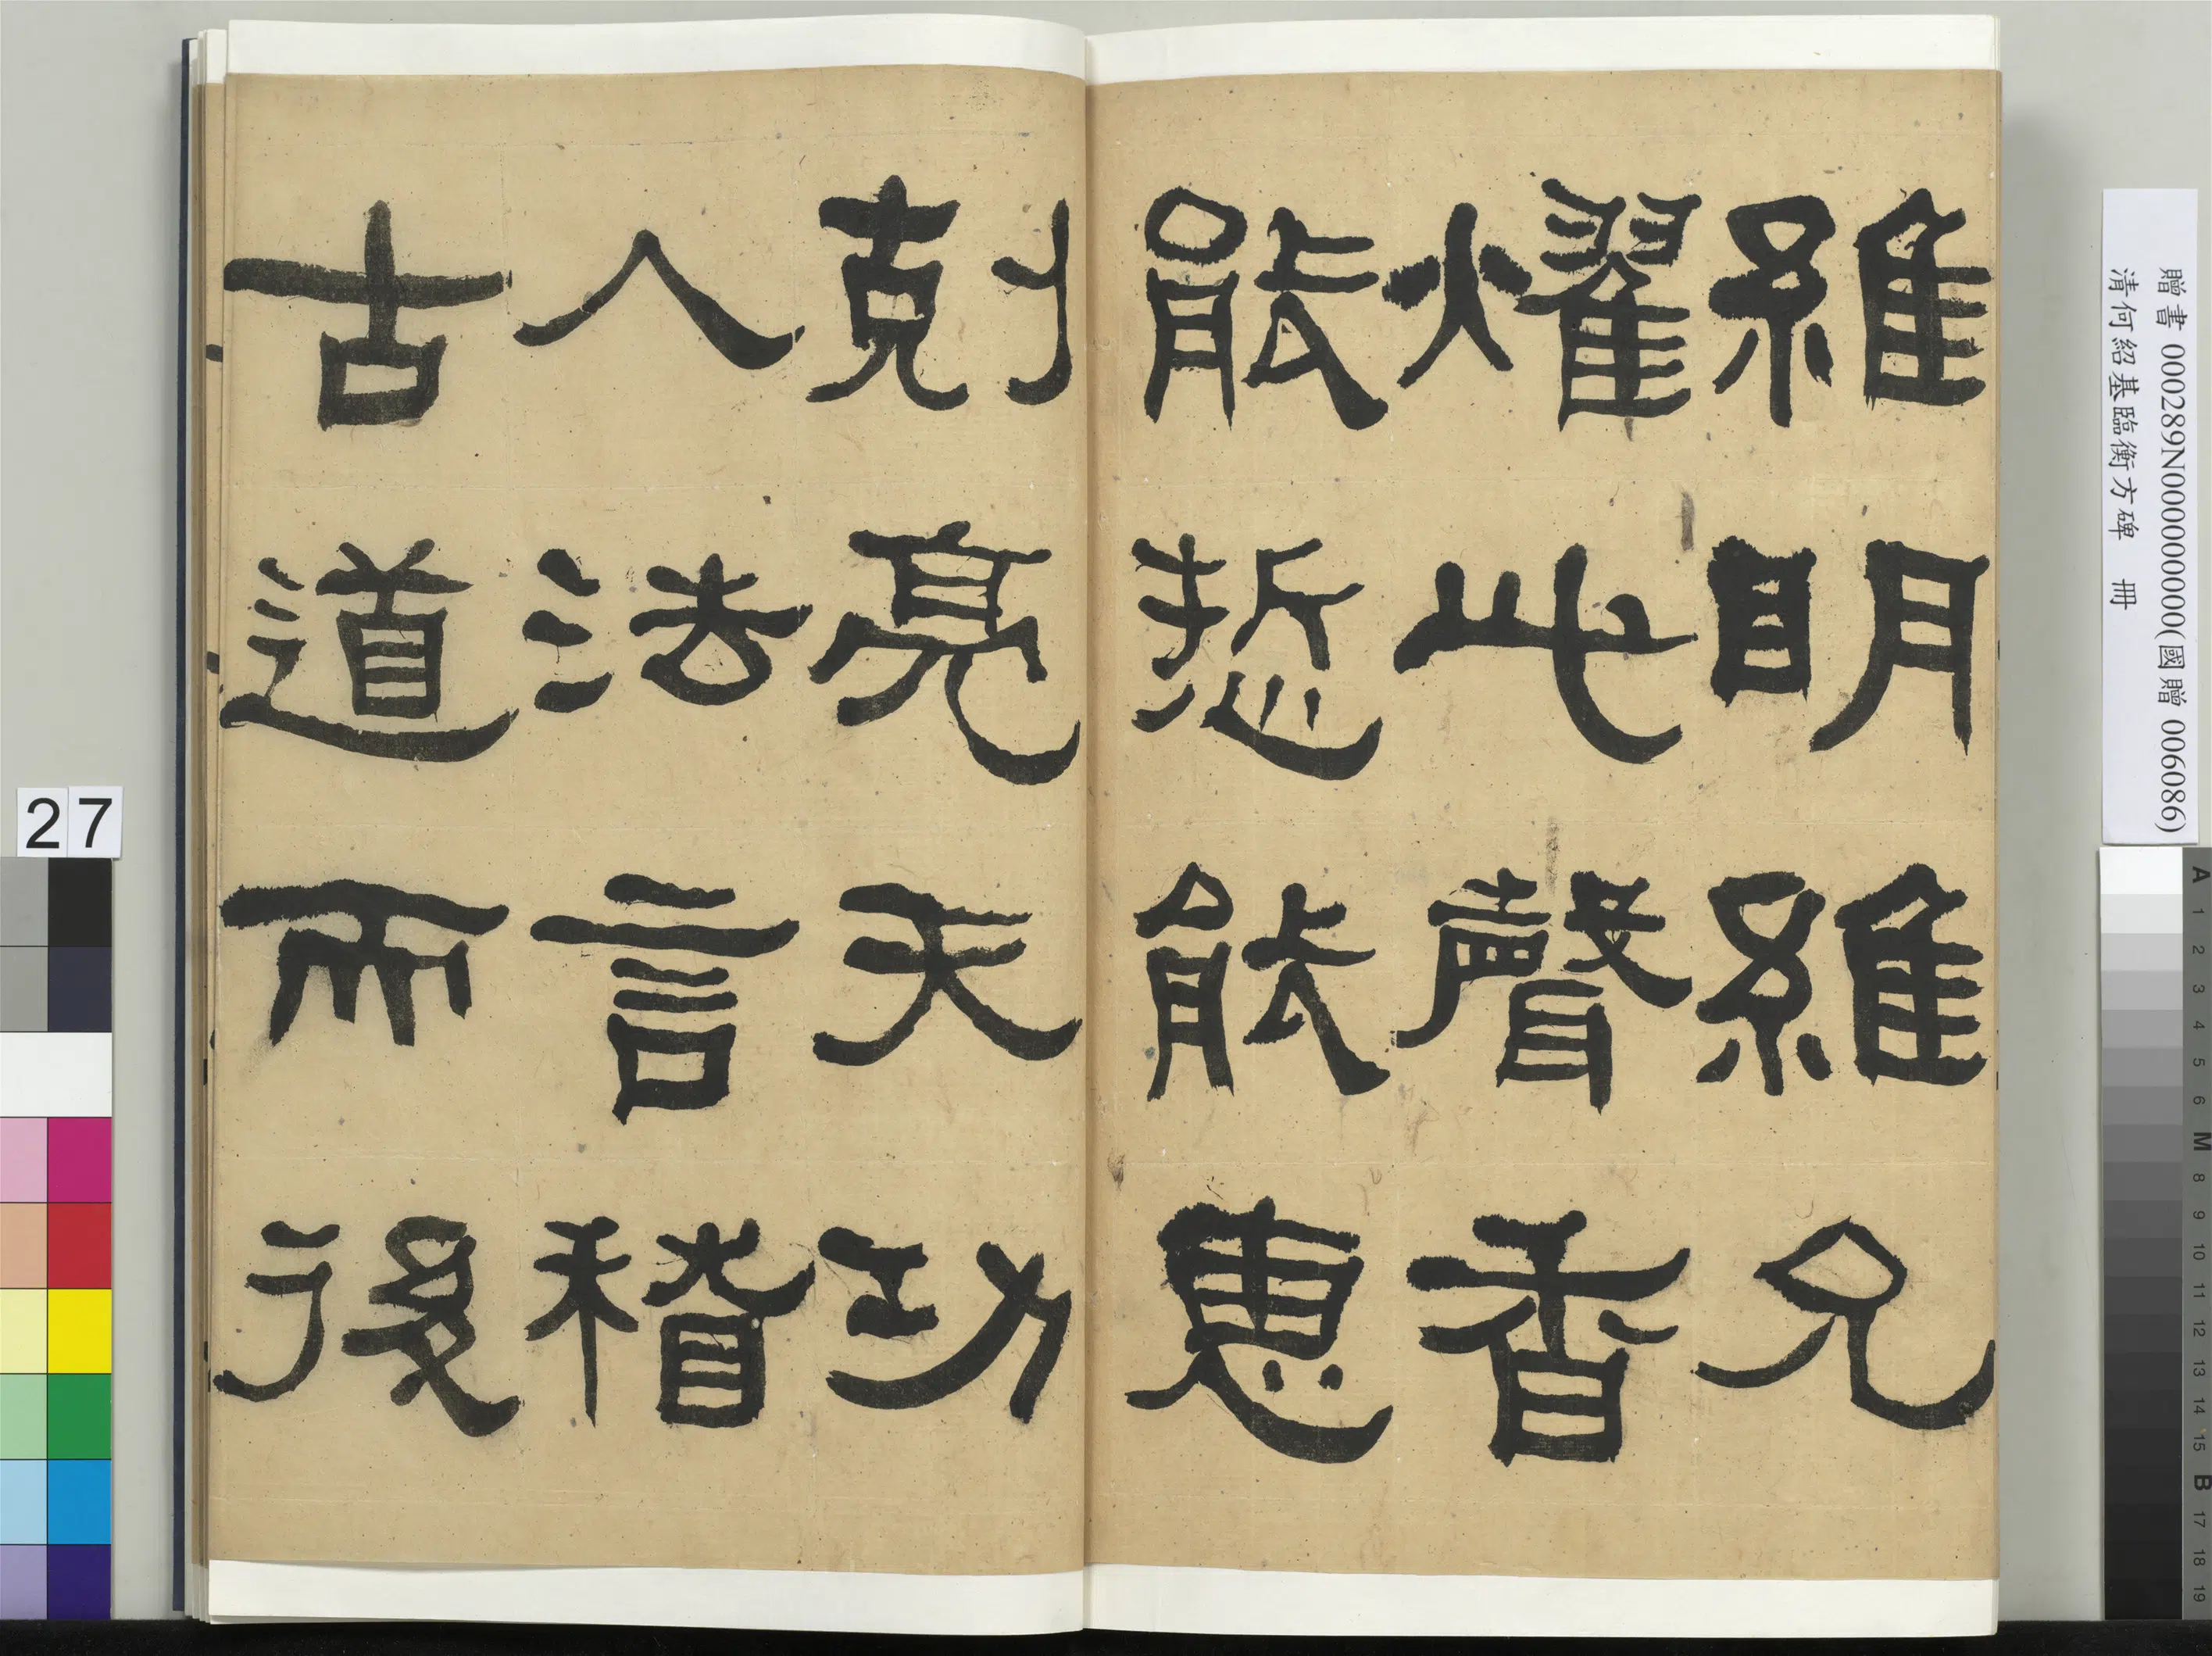 維明維允
燿此聲香
能悊能惠
剋亮天功
入法言稽
古道而後
贈書 000289N000000000(國贈 006086)
清何紹基臨衡方碑 冊
27
A 1 2 3 4 5 6 M 8 9 10 11 12 13 14 15 B 17 18 19